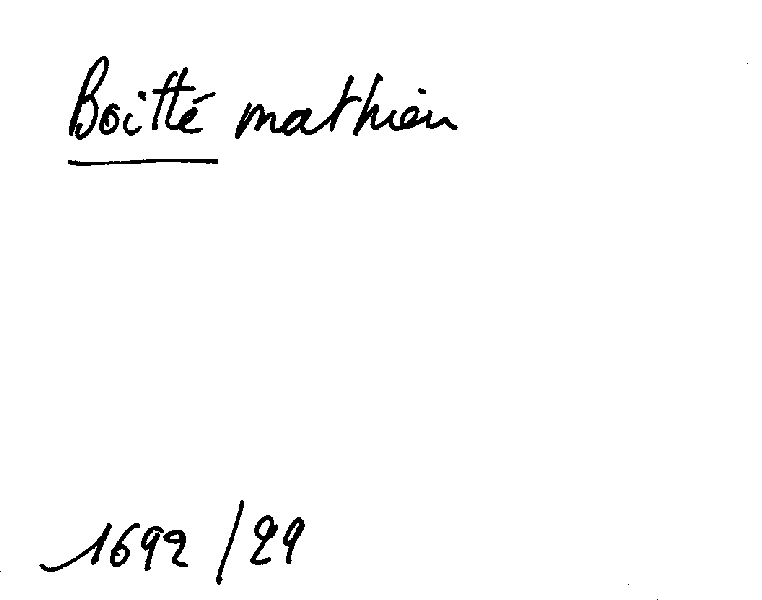 Boitté mathieu
1692 / 29